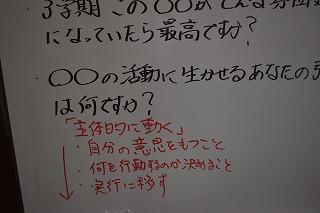 3学期 この○○が どんな雰囲気
になっていたら最高ですか?
・○○の活動に生かせるあなたの
は何ですか?
「主体的に動く」
・自分の意思をもつこと
・何を行動するのか決めること
・実行に移す